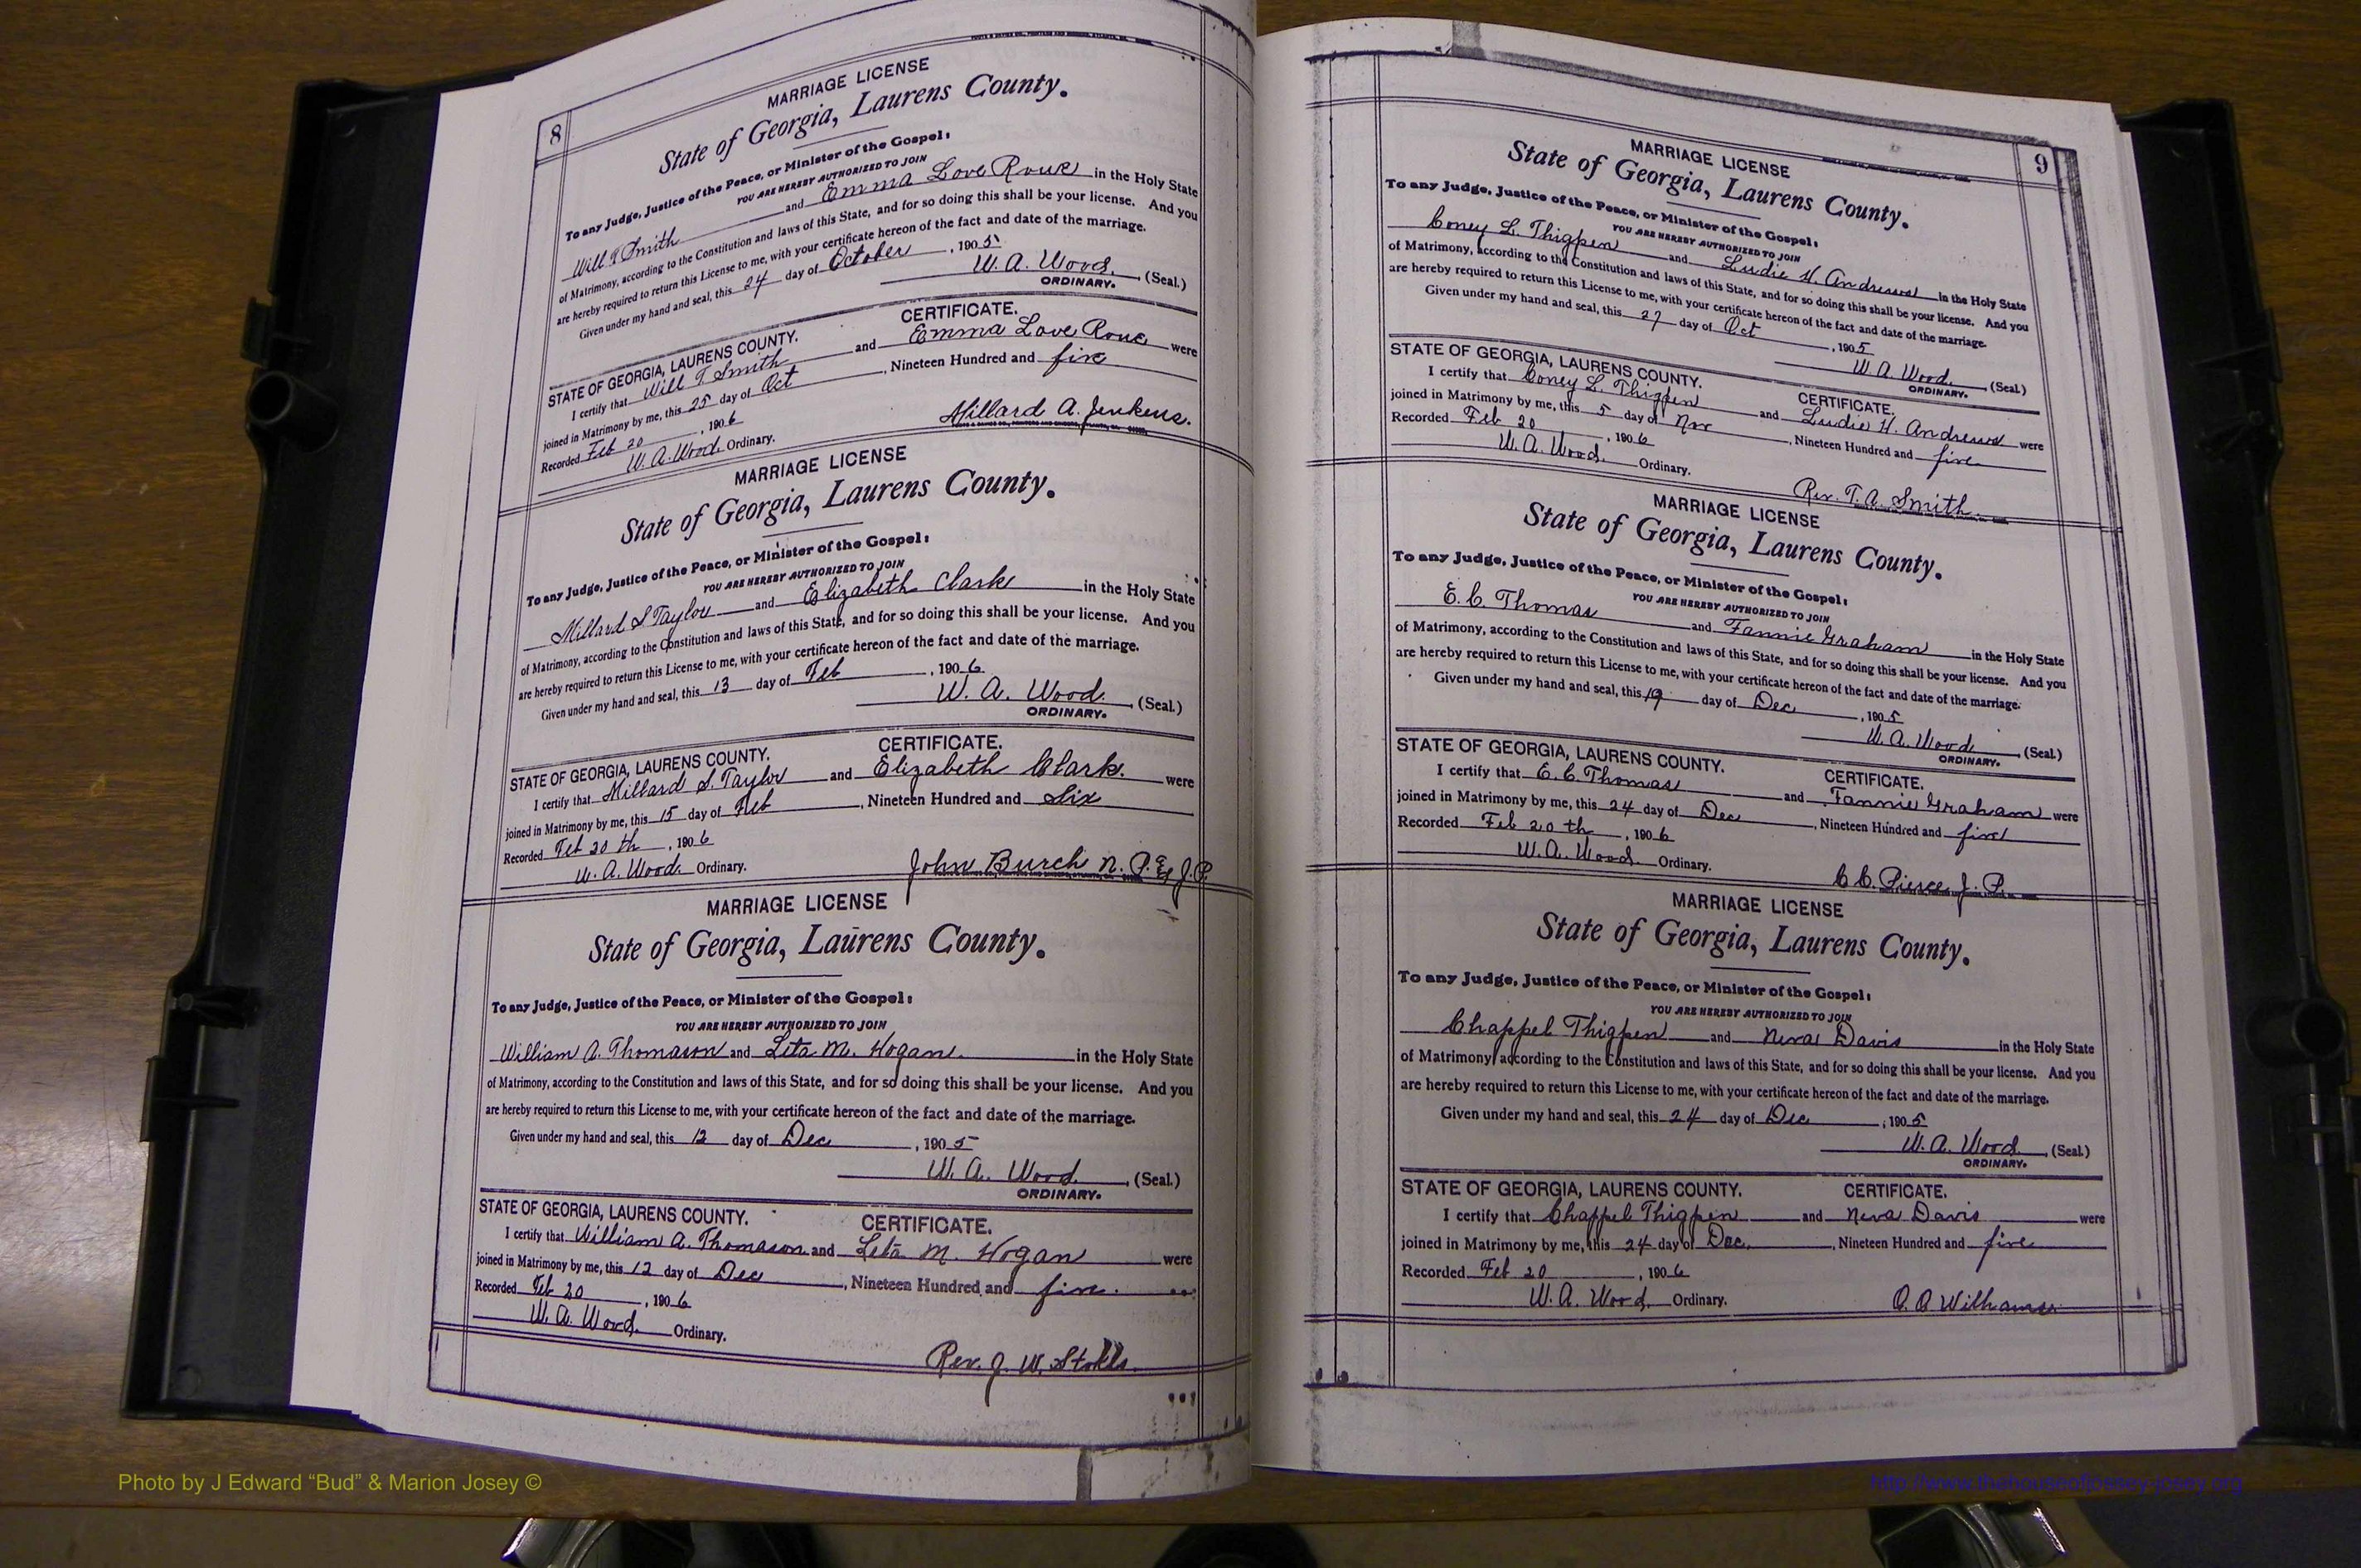 8
MARRIAGE LICENSE
State of Georgia, Laurens County.
To any Judge, Justice of the Peace, or Minister of the Gospel:
YOU ARE HEREBY AUTHORIZED TO JOIN
Will T Smith and Emma Love Roue in the Holy State
of Matrimony, according to the Constitution and laws of this State, and for so doing this shall be your license. And you
are hereby required to return this License to me, with your certificate hereon of the fact and date of the marriage.
Given under my hand and seal, this 24 day of October, 1905
W. A. Wood. (Seal.)
ORDINARY.
STATE OF GEORGIA, LAURENS COUNTY. CERTIFICATE.
I certify that Will T Smith and Emma Love Roue were
joined in Matrimony by me, this 25 day of Oct, Nineteen Hundred and five
Recorded Feb 20, 1906
W. A. Wood. Ordinary.
Millard A. Jenkens.
MARRIAGE LICENSE
State of Georgia, Laurens County.
To any Judge, Justice of the Peace, or Minister of the Gospel:
YOU ARE HEREBY AUTHORIZED TO JOIN
Millard S Taylor and Elizabeth Clark in the Holy State
of Matrimony, according to the Constitution and laws of this State, and for so doing this shall be your license. And you
are hereby required to return this License to me, with your certificate hereon of the fact and date of the marriage.
Given under my hand and seal, this 13 day of Feb, 1906
W. A. Wood. (Seal.)
ORDINARY.
STATE OF GEORGIA, LAURENS COUNTY. CERTIFICATE.
I certify that Millard S. Taylor and Elizabeth Clark. were
joined in Matrimony by me, this 15 day of Feb, Nineteen Hundred and Six
Recorded Feb 20 th, 1906
W. A. Wood. Ordinary.
John Burch N. P. Ex J. P.
MARRIAGE LICENSE
State of Georgia, Laurens County.
To any Judge, Justice of the Peace, or Minister of the Gospel:
YOU ARE HEREBY AUTHORIZED TO JOIN
William A. Thomason and Leta M. Hogan. in the Holy State
of Matrimony, according to the Constitution and laws of this State, and for so doing this shall be your license. And you
are hereby required to return this License to me, with your certificate hereon of the fact and date of the marriage.
Given under my hand and seal, this 12 day of Dec, 1905
W. A. Wood. (Seal.)
ORDINARY.
STATE OF GEORGIA, LAURENS COUNTY. CERTIFICATE.
I certify that William A. Thomason and Leta M. Hogan were
joined in Matrimony by me, this 12 day of Dec, Nineteen Hundred and five.
Recorded Feb 20, 1906
W. A. Wood. Ordinary.
Rev. J. W. Stokes.
9
MARRIAGE LICENSE
State of Georgia, Laurens County.
To any Judge, Justice of the Peace, or Minister of the Gospel:
YOU ARE HEREBY AUTHORIZED TO JOIN
Coney L. Thigpen and Ludie H. Andrews in the Holy State
of Matrimony, according to the Constitution and laws of this State, and for so doing this shall be your license. And you
are hereby required to return this License to me, with your certificate hereon of the fact and date of the marriage.
Given under my hand and seal, this 27 day of Oct, 1905
W. A. Wood. (Seal.)
ORDINARY.
STATE OF GEORGIA, LAURENS COUNTY. CERTIFICATE.
I certify that Coney L. Thigpen and Ludie H. Andrews were
joined in Matrimony by me, this 5 day of Nov, Nineteen Hundred and five
Recorded Feb 20, 1906
W. A. Wood. Ordinary.
Rev. T. A. Smith.
MARRIAGE LICENSE
State of Georgia, Laurens County.
To any Judge, Justice of the Peace, or Minister of the Gospel:
YOU ARE HEREBY AUTHORIZED TO JOIN
E. C. Thomas and Fannie Graham in the Holy State
of Matrimony, according to the Constitution and laws of this State, and for so doing this shall be your license. And you
are hereby required to return this License to me, with your certificate hereon of the fact and date of the marriage.
Given under my hand and seal, this 19 day of Dec, 1905
W. A. Wood (Seal.)
ORDINARY.
STATE OF GEORGIA, LAURENS COUNTY. CERTIFICATE.
I certify that E. C. Thomas and Fannie Graham were
joined in Matrimony by me, this 24 day of Dec, Nineteen Hundred and five
Recorded Feb 20 th, 1906
W. A. Wood. Ordinary.
C. C. Pierce J. P.
MARRIAGE LICENSE
State of Georgia, Laurens County.
To any Judge, Justice of the Peace, or Minister of the Gospel:
YOU ARE HEREBY AUTHORIZED TO JOIN
Chappel Thigpen and Neva Davis in the Holy State
of Matrimony, according to the Constitution and laws of this State, and for so doing this shall be your license. And you
are hereby required to return this License to me, with your certificate hereon of the fact and date of the marriage.
Given under my hand and seal, this 24 day of Dec, 1905
W. A. Wood. (Seal.)
ORDINARY.
STATE OF GEORGIA, LAURENS COUNTY. CERTIFICATE.
I certify that Chappel Thigpen and Neva Davis were
joined in Matrimony by me, this 24 day of Dec., Nineteen Hundred and five
Recorded Feb 20, 1906
W. A. Wood. Ordinary.
O. A Williams.
Photo by J Edward “Bud” & Marion Josey ©
http://www.thehouseofjossey-josey.org